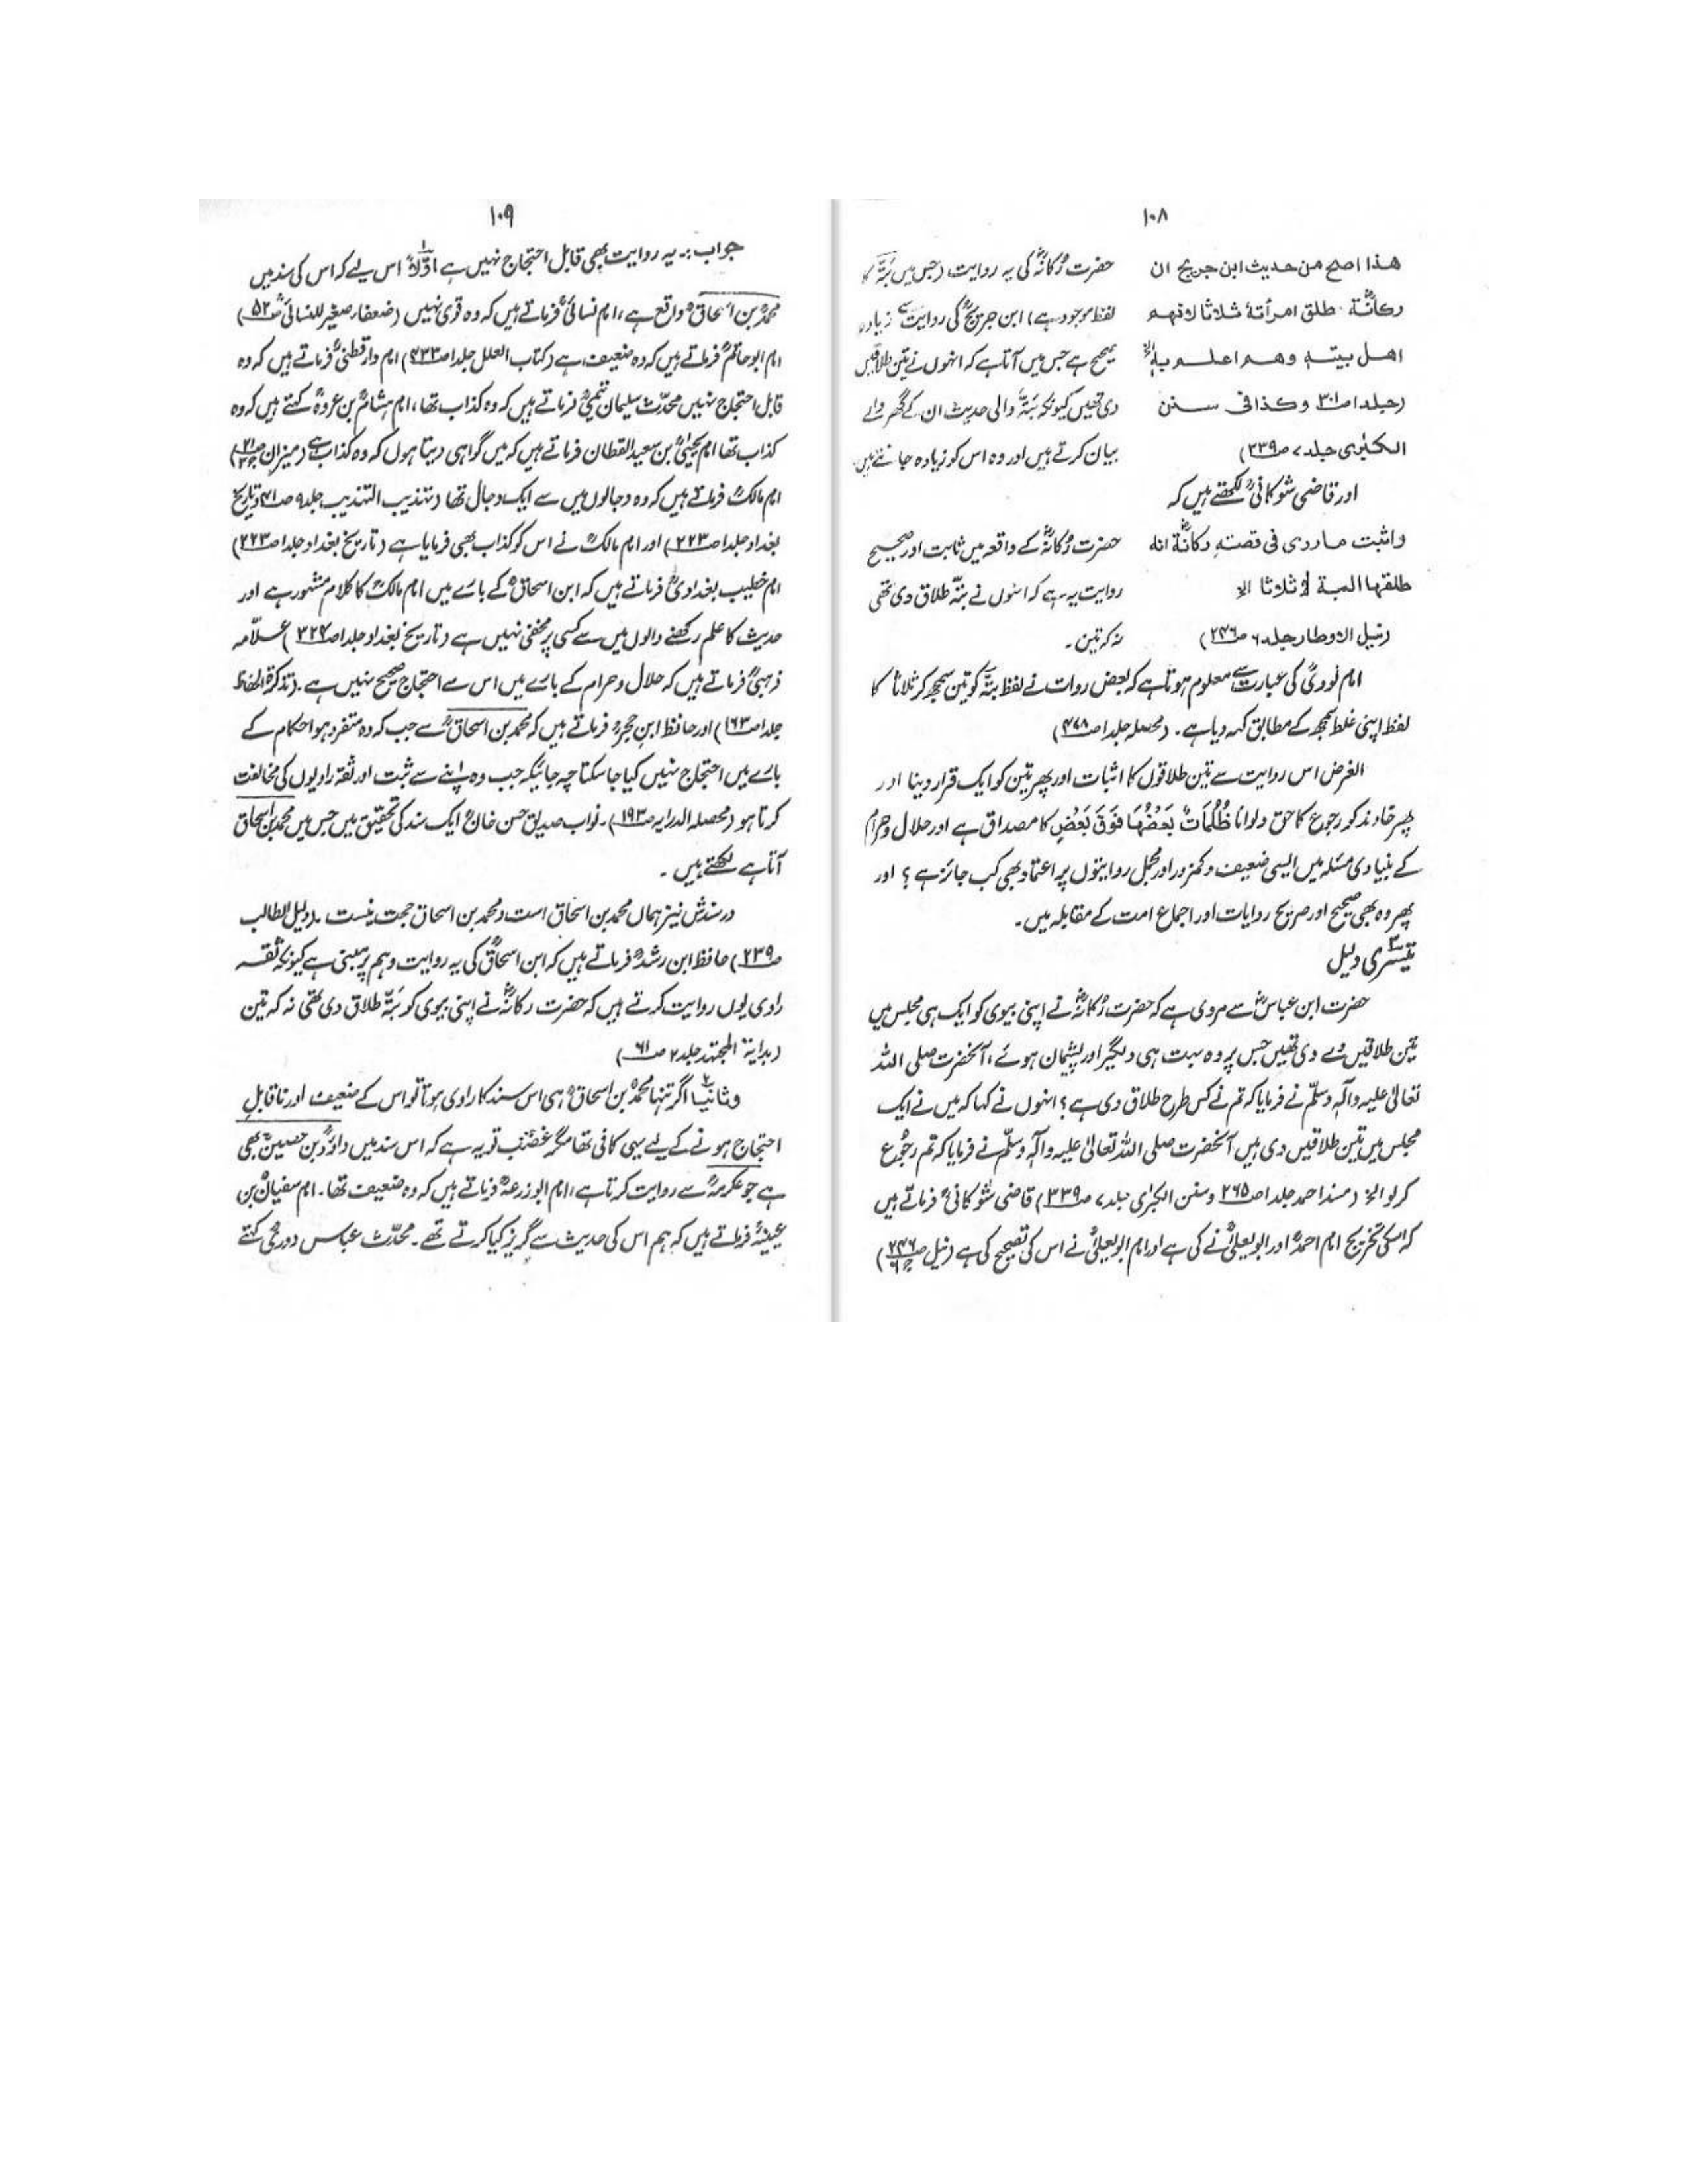 ۱۰۸
هذا اصح من حديث ابن جريج ان
ركانةؓ طلق امرأتهٗ ثلاثا لانهم
اهل بيتهٖ وهم اعلم بهٖ الخ
(جلد۱ ص۳۰۱ وكذا فى سنن
الكبرٰى جلد۷ ص۳۳۹)
حضرت رُکانہؓ کی یہ روایت (جس میں بَتَّہ کا
لفظ موجود ہے) ابن جریجؒ کی روایت سے زیادہ
صحیح ہے جس میں آتا ہے کہ انہوں نے تین طلاقیں
دی تھیں کیونکہ بَتَّہ والی حدیث ان کے گھر والے
بیان کرتے ہیں اور وہ اس کو زیادہ جانتے ہیں۔
اور قاضی شوکانیؒ لکھتے ہیں کہ
واثبت ماروى فى قصتهٖ ركانةؓ انه
طلقها البتة لا ثلاثا الا
(نيل الاوطار جلد۶ ص۲۴۶)
حضرت رُکانہؓ کے واقعہ میں ثابت اور صحیح
روایت یہ ہے کہ انہوں نے بتّہ طلاق دی تھی
نہ کہ تین۔
امام نوویؒ کی عبارت سے معلوم ہوتا ہے کہ بعض روات نے لفظ بتَّہ کو تین سمجھ کر ثلاثاً کا
لفظ اپنی غلط سمجھ کے مطابق کہہ دیا ہے۔ (محصلہ جلد۱ ص۴۷۸)
الغرض اس روایت سے تین طلاقوں کا اثبات اور پھر تین کو ایک قرار دینا اور
پھر خاوند کو رجوع کا حق دلوانا ظُلُمَاتٌ بَعْضُهَا فَوْقَ بَعْضٍ کا مصداق ہے اور حلال و حرام
کے بنیادی مسئلہ میں ایسی ضعیف و کمزور اور مجمل روایتوں پر اعتماد بھی کب جائز ہے؟ اور
پھر وہ بھی صحیح اور صریح روایات اور اجماع امت کے مقابلہ میں۔
تیسری دلیل
حضرت ابن عباسؓ سے مروی ہے کہ حضرت رُکانہؓ نے اپنی بیوی کو ایک ہی مجلس میں
تین طلاقیں دے دی تھیں جس پر وہ بہت ہی دلگیر اور پشیمان ہوئے، آنحضرت صلی اللہ
تعالیٰ علیہ وآلہٖ وسلّم نے فرمایا کہ تم نے کس طرح طلاق دی ہے؟ انہوں نے کہا کہ میں نے ایک
مجلس میں تین طلاقیں دی ہیں آنحضرت صلی اللہ تعالیٰ علیہ وآلہٖ وسلّم نے فرمایا کہ تم رجُوع
کر لو الخ (مسند احمد جلد۱ ص۲۶۵ وسنن الکبرٰی جلد۷ ص۳۳۹) قاضی شوکانیؒ فرماتے ہیں
کہ اسکی تخریج امام احمدؒ اور ابویعلیٰؒ نے کی ہے اور امام ابویعلیٰؒ نے اس کی تصحیح کی ہے (نیل ص۲۴۶ ج۶)
۱۰۹
جواب:۔ یہ روایت بھی قابل احتجاج نہیں ہے اوّلاً اس لیے کہ اس کی سند میں
محمدؒ بن اسحاقؒ واقع ہے، امام نسائیؒ فرماتے ہیں کہ وہ قوی نہیں (ضعفاء صغیر للنسائیؒ ص۵۲)
امام ابوحاتمؒ فرماتے ہیں کہ وہ ضعیف ہے (کتاب العلل جلد۱ ص۴۳۳) امام دارقطنیؒ فرماتے ہیں کہ وہ
قابل احتجاج نہیں محدّث سلیمان تیمیؒ فرماتے ہیں کہ وہ کذاب تھا، امام ہشامؒ بن عروہؒ کہتے ہیں کہ وہ
کذاب تھا امام یحییٰؒ بن سعید القطان فرماتے ہیں کہ میں گواہی دیتا ہوں کہ وہ کذاب ہے (میزان ص۲۱ ج۳)
امام مالکؒ فرماتے ہیں کہ وہ دجالوں میں سے ایک دجال تھا (تہذیب التہذیب جلد۹ ص۴۱ و تاریخ
بغداد جلد۱ ص۲۲۳) اور امام مالکؒ نے اس کو کذاب بھی فرمایا ہے (تاریخ بغداد جلد۱ ص۲۲۳)
امام خطیب بغدادیؒ فرماتے ہیں کہ ابن اسحاقؒ کے بارے میں امام مالکؒ کا کلام مشہور ہے اور
حدیث کا علم رکھنے والوں میں سے کسی پر مخفی نہیں ہے (تاریخ بغداد جلد۱ ص۲۲۴) علّامہ
ذہبیؒ فرماتے ہیں کہ حلال و حرام کے بارے میں اس سے احتجاج صحیح نہیں ہے۔ (تذکرۃ الحفاظ
جلد۱ ص۱۶۳) اور حافظ ابن حجرؒ فرماتے ہیں کہ محمد بن اسحاقؒ سے جب کہ وہ متفرد ہو احکام کے
بارے میں احتجاج نہیں کیا جا سکتا چہ جائیکہ جب وہ اپنے سے ثبت اور ثقہ راویوں کی مخالفت
کرتا ہو (محصلہ الدرایہ ص۱۹۳)۔ نواب صدیق حسن خانؒ ایک سند کی تحقیق میں جس میں محمد بن اسحاق
آتا ہے لکھتے ہیں۔
در سندش نیز ہماں محمد بن اسحاق است و محمد بن اسحاق حجت نیست۔ (دلیل الطالب
ص۲۳۹) حافظ ابن رشدؒ فرماتے ہیں کہ ابن اسحاقؒ کی یہ روایت وہم پر مبنی ہے کیونکہ ثقہ
راوی یوں روایت کرتے ہیں کہ حضرت رکانہؓ نے اپنی بیوی کو بَتَّہ طلاق دی تھی نہ کہ تین
(بدایۃ المجتہد جلد۲ ص۶۱)
وثانیاً اگر تنہا محمدؒ بن اسحاقؒ ہی اس سند کا راوی ہوتا تو اس کے ضعیف اور ناقابلِ
احتجاج ہونے کے لیے یہی کافی تھا مگر غضب تو یہ ہے کہ اس سند میں داؤدؒ بن حصینؒ بھی
ہے جو عکرمہؒ سے روایت کرتا ہے، امام ابوزرعہؒ فرماتے ہیں کہ وہ ضعیف تھا۔ امام سفیانؒ بن
عیینہؒ فرماتے ہیں کہ ہم اس کی حدیث سے گریز کیا کرتے تھے۔ محدّث عباس دوریؒ کہتے